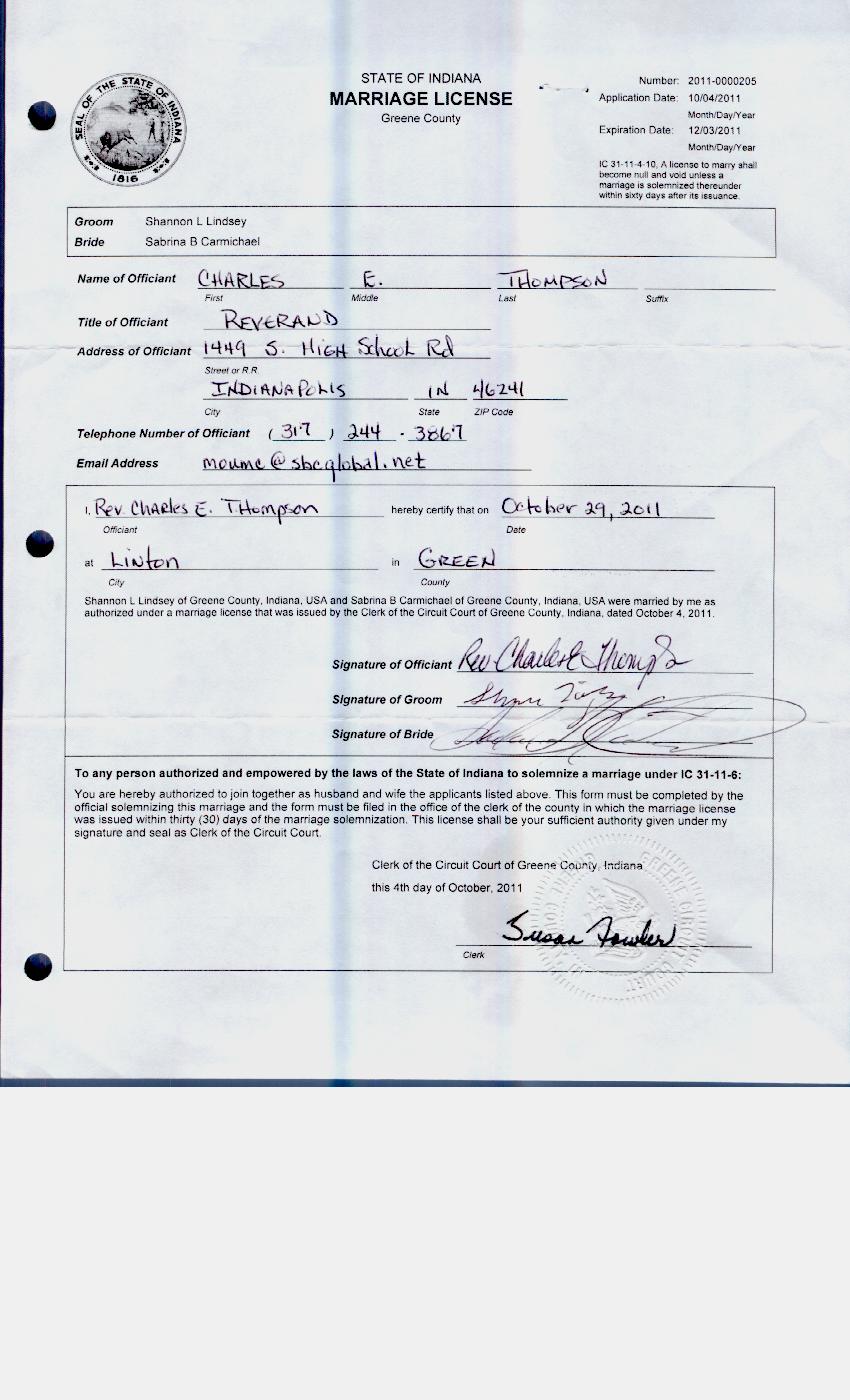 SEAL OF THE STATE OF INDIANA
1816
STATE OF INDIANA
MARRIAGE LICENSE
Greene County
Number: 2011-0000205
Application Date: 10/04/2011
Month/Day/Year
Expiration Date: 12/03/2011
Month/Day/Year
IC 31-11-4-10, A license to marry shall
become null and void unless a
marriage is solemnized thereunder
within sixty days after its issuance.
Groom Shannon L Lindsey
Bride Sabrina B Carmichael
Name of Officiant CHARLES E. THOMPSON
First Middle Last Suffix
Title of Officiant REVERAND
Address of Officiant 1449 S. HIGH SCHOOL Rd
Street or R.R.
INDIANAPOLIS IN 46241
City State ZIP Code
Telephone Number of Officiant (317) 244 - 3867
Email Address moumc@sbcglobal.net
I, Rev CHARLES E. THOMPSON hereby certify that on October 29, 2011
Officiant Date
at Linton in GREEN
City County
Shannon L Lindsey of Greene County, Indiana, USA and Sabrina B Carmichael of Greene County, Indiana, USA were married by me as
authorized under a marriage license that was issued by the Clerk of the Circuit Court of Greene County, Indiana, dated October 4, 2011.
Signature of Officiant Rev Charles E Thompson
Signature of Groom
Signature of Bride
To any person authorized and empowered by the laws of the State of Indiana to solemnize a marriage under IC 31-11-6:
You are hereby authorized to join together as husband and wife the applicants listed above. This form must be completed by the
official solemnizing this marriage and the form must be filed in the office of the clerk of the county in which the marriage license
was issued within thirty (30) days of the marriage solemnization. This license shall be your sufficient authority given under my
signature and seal as Clerk of the Circuit Court.
Clerk of the Circuit Court of Greene County, Indiana
this 4th day of October, 2011
Susan Fowler
Clerk